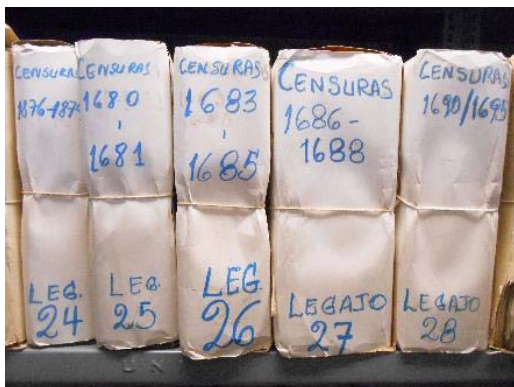 CENSURAS
1876-187
LEG.
24
CENSURAS
1680
-
1681
LEG.
25
CENSURAS
1683
-
1685
LEG.
26
CENSURAS
1686-
1688
LEGAJO
27
CENSURAS
1690/1695
LEGAJO
28